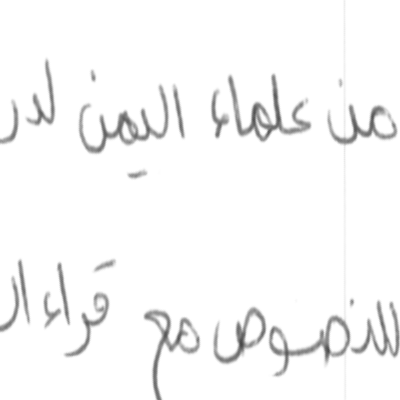 من علماء اليمن لدر
للنصوص مع قراءا